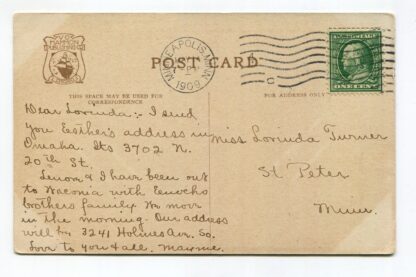 POST CARD
MINNEAPOLIS, MINN.
1909
THIS SPACE MAY BE USED FOR
CORRESPONDENCE
FOR ADDRESS ONLY
ONE CENT
Dear Lorinda:- I send
you Esther's address in
Omaha. Its 3702 N.
20th St.
Lenore & I have been out
to Waconia with Enochs
brothers family. We move
in the morning. Our address
will be 3241 Holmes Av. So.
Love to you & all. Mayme.
Miss Lorinda Turner
St. Peter
Minn.